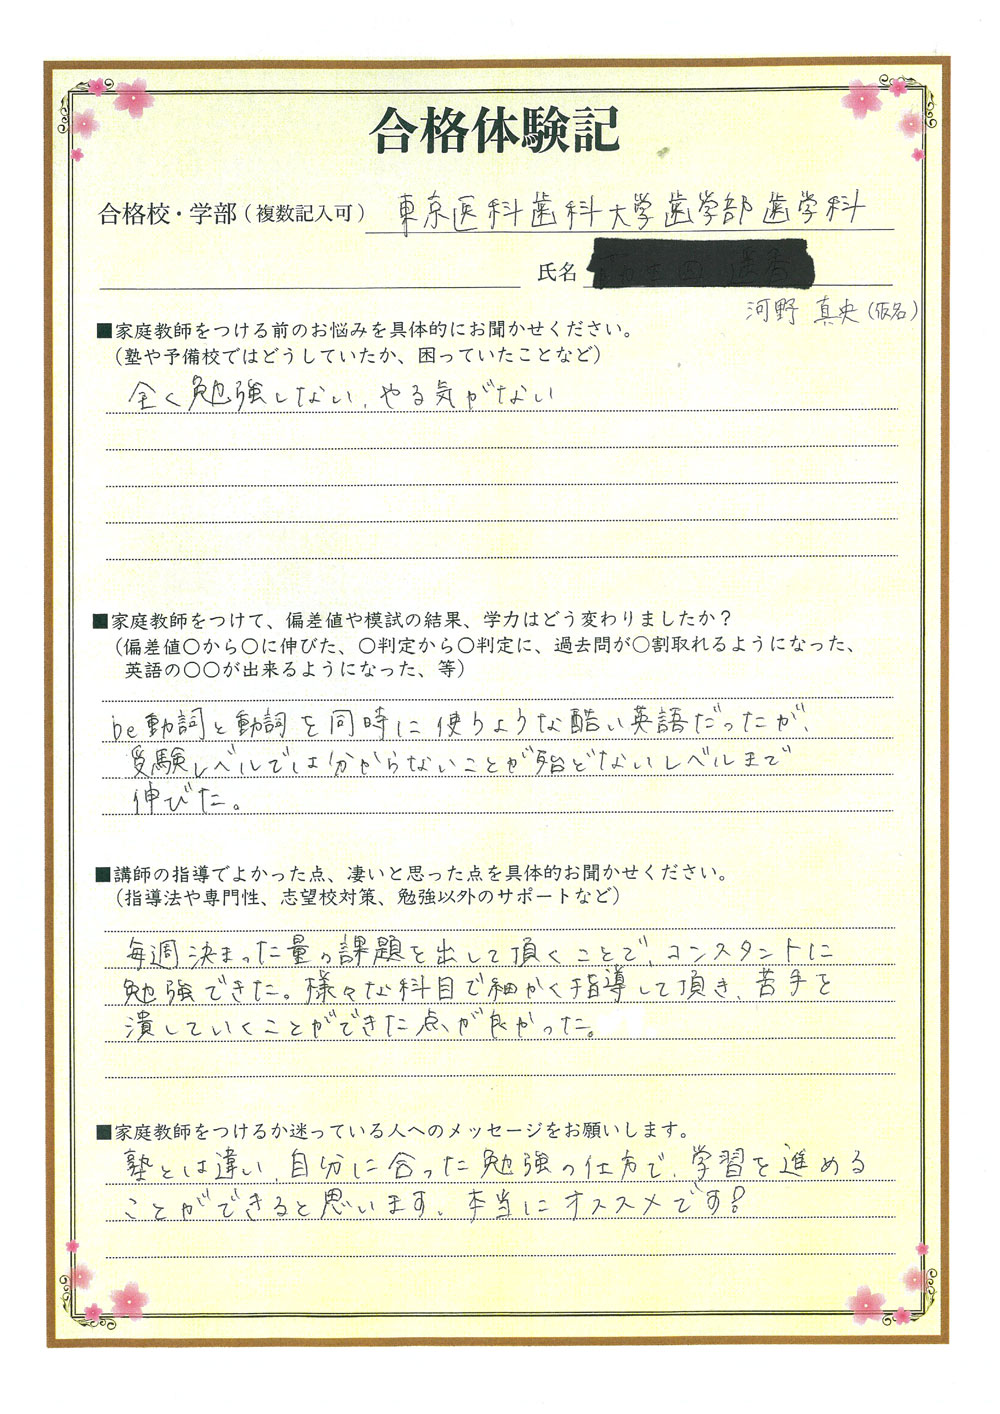 合格体験記
合格校・学部（複数記入可） 東京医科歯科大学歯学部歯学科
氏名
河野 真央（仮名）
■家庭教師をつける前のお悩みを具体的にお聞かせください。
（塾や予備校ではどうしていたか、困っていたことなど）
全く勉強しない、やる気がない
■家庭教師をつけて、偏差値や模試の結果、学力はどう変わりましたか？
（偏差値〇から〇に伸びた、〇判定から〇判定に、過去問が〇割取れるようになった、
英語の〇〇が出来るようになった、等）
be動詞と動詞を同時に使うような酷い英語だったが、
受験レベルでは分からないことが殆どないレベルまで
伸びた。
■講師の指導でよかった点、凄いと思った点を具体的お聞かせください。
（指導法や専門性、志望校対策、勉強以外のサポートなど）
毎週決まった量の課題を出して頂くことで、コンスタントに
勉強できた。様々な科目で細かく指導して頂き、苦手を
潰していくことができた点が良かった。
■家庭教師をつけるか迷っている人へのメッセージをお願いします。
塾とは違い、自分に合った勉強の仕方で、学習を進める
ことができると思います、本当にオススメです！